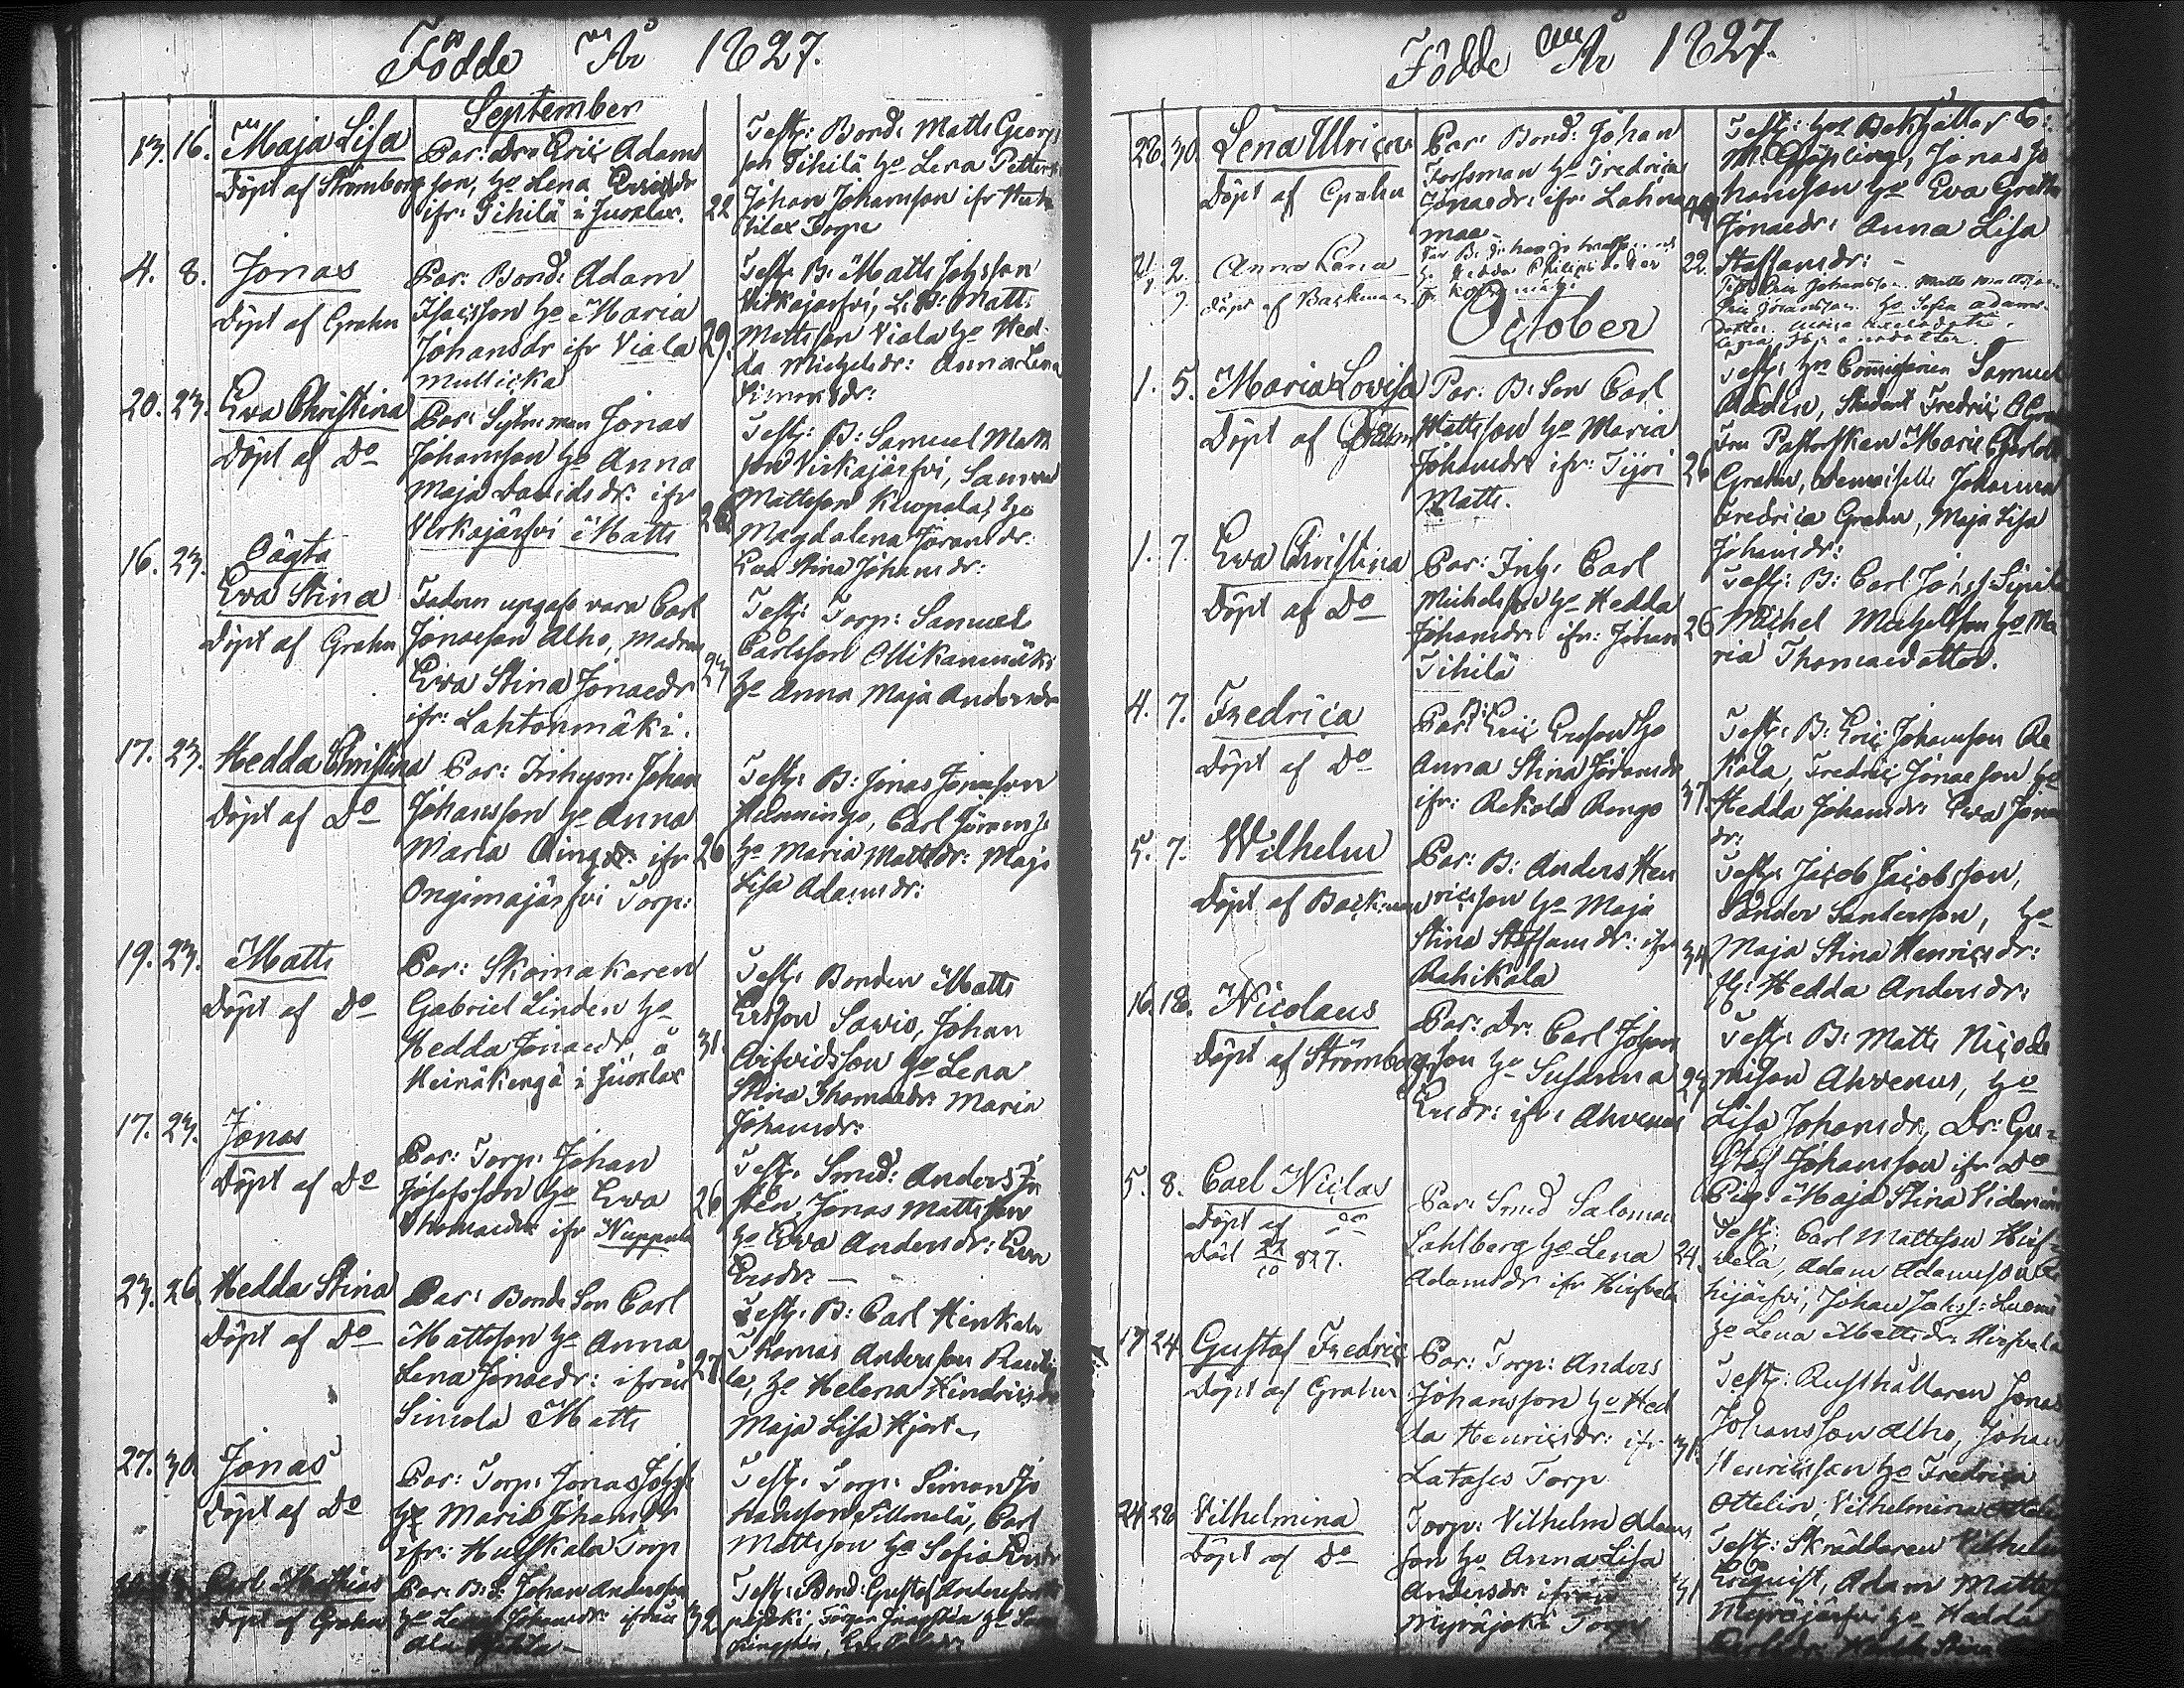 Födde År 1827.
September
13. 16. Maja Lisa
Döpt af Strömberg
Par: Dr: Eric Adams
son, ho Lena Ericsdr
ifr: Tihilä i Juoxlax.
22
Test: Bond: Matts Georgs
son Tihilä, ho Lena Petters
Johan Johansson ifr
Torp
4. 8. Jonas
Döpt af Grahn
Par: Bond: Adam
Isacsson ho Maria
Johansdr ifr Viala
Mullicka
29.
Test: B: Matts Johsson
Virkajärfvi, B: Matts
Mattsson Viala ho Hed-
da Michelsdr: Anna Lena
Simonsdr:
20. 23. Eva Christina
Döpt af Do
Par: Sytn:man Jonas
Johansson ho Anna
Maja Davidsdr: ifr
Virkajärfvi Matts
26
Test: B: Samuel Matts
son Virkajärfvi, Samuel
Mattsson Kuopala, ho
Magdalena Göransdr.
Eva Stina Johansdr:
16. 23. Oägta
Eva Stina
Döpt af Grahn
Fadern upgafs vara Carl
Jonasson Alho, Modren
Eva Stina Jonaedr
ifr: Lahtonmäki.
23
Test: Torp: Samuel
Carlsson Ollikanmäki
ho Anna Maja Andersdr
17. 23. Hedda Christina
Döpt af Do
Par: Inhysn: Johan
Johansson ho Anna
Maria ifr
Ongimajärfvi Torp:
26
Test: B: Jonas Jonasson
Hemmingo, Carl Görans
ho Maria Mattsdr: Maja
Lisa Adamsdr:
19. 23. Matts
Döpt af Do
Par: Skomakaren
Gabriel Linden ho
Hedda Jonaedr å
Heinäkengä i Juoxlax
31.
Test: Bonden Matts
Ersson Sawio, Johan
Arfvidsson ho Lena
Stina Thomaedr: Maria
Johansdr:
17. 23. Jonas
Döpt af Do
Par: Torp: Johan
Josefsson ho Eva
Thomaedr ifr Nuppula
26
Test: Smed: Anders
Jonas Mattsson
ho Eva Andersdr: Eva
Ersdr:
23. 26. Hedda Stina
Döpt af Do
Par: Bonde Son Carl
Mattsson ho Anna
Lena Jonaedr: ifrån
Simola Matts
27.
Test: B: Carl Henkala
Thomas Andersson
la, ho Helena Hindricsdr
Maja Lisa Hjort
27. 30. Jonas
Döpt af Do
Par: Torp: Jonas Johss:
ho Maria Johansdr
ifr: Huiskala Torp
Test: Torp: Simon Jo
hansson Tillmalä, Carl
Mattsson ho Sofia Ersdr
Carl Mathias
Döpt af Grahn
Par: B:S: Johan Andersson
ho Lena Johansdr: ifrån
32
Test: Bond: Gustaf Andersson
Födde År 1827.
28. 30. Lena Ulrica
Döpt af Grahn
Par: Bond: Johan
Forssman ho Fredrica
Jonaedr: ifr: Lahna
maa
Test: Hr Bokhållar C:
M. Gjöpling, Jonas Jo
hansson ho Eva Greta
Jonaedr: Anna Lisa
Staffansdr:
2. Anna Lena
Döpt af Backman
22.
Test: Eric Johansson Matts Mattsson
ho Sofia Adams
October
1. 5. Maria Lovisa
Döpt af Grahn
Par: B: Son Carl
Mattsson ho Maria
Johansdr: ifr: Tijri
Matts.
26
Test: Hr Commissarien Samuel
Student Fredric
Fru Pastorskan Maria Charlotta
Grahn, Demoiselle Johanna
Fredrica Grahn, Maja Lisa
Johansdr:
1. 7. Eva Christina
Döpt af Do
Par: Inh: Carl
Michelsson ho Hedda
Johansdr: ifr: Johan
Tihilä
26
Test: B: Carl Johss:
Michel Michelsson ho Ma
ria Thomaedotter.
4. 7. Fredrica
Döpt af Do
Par: B: Eric Ersson ho
Anna Stina Göransdr
ifr: Rekola Rengo
37.
Test: B: Eric Johansson Re
kola, Fredric Jonasson ho
Hedda Johansdr: Eva Jonae
dr:
5. 7. Wilhelm
Döpt af Backman
Par: B: Anders Hen
ricsson ho Maja
Stina Staffansdr: ifr
Rahikala
34
Test: Jacob Jacobsson,
Sander Sandersson, ho
Maja Stina Henricsdr:
Hedda Andersdr:
16. 18. Nicolaus
Döpt af Strömberg
Par: Dr: Carl Johans
son ho Susanna
Ersdr: ifr: Ahvenus
Test: B: Matts Nicode
misson Ahvenus, ho
Lisa Johansdr, Dr: Gu-
staf Johansson ifr Do
Pig: Maja Stina
5. 8. Carl Niclas
Döpt af Do
Död 827.
Par: Smed Salomon
Lahlberg ho Lena
Adamsdr ifr Hirfvela
24.
Test: Carl Mattsson Hirf-
vela, Adam Adamsson
hijärfvi, Johan Johss:
ho Lena Mattsdr: Hirfvela
17 24 Gustaf Fredric
Döpt af Grahn
Par: Torp: Anders
Johansson ho Hed
da Henricsdr: ifr
Latosis Torp
31.
Test: Rusthållaren Jonas
Johansson Alho, Johan
Henricsson ho Fredrica
Ottelin, Vilhelmina
24 28 Vilhelmina
Döpt af Do
Torp: Vilhelm Adams
son ho Anna Lisa
Andersdr: ifrån
Myräjoki Torp
31
Test: Skräddaren Vilhelm
Adam Matts
ho Hedda